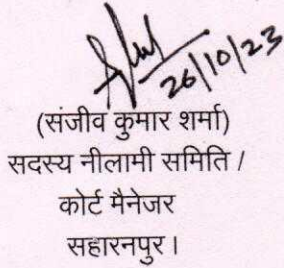 26/10/23
(संजीव कुमार शर्मा)
सदस्य नीलामी समिति /
कोर्ट मैनेजर
सहारनपुर।